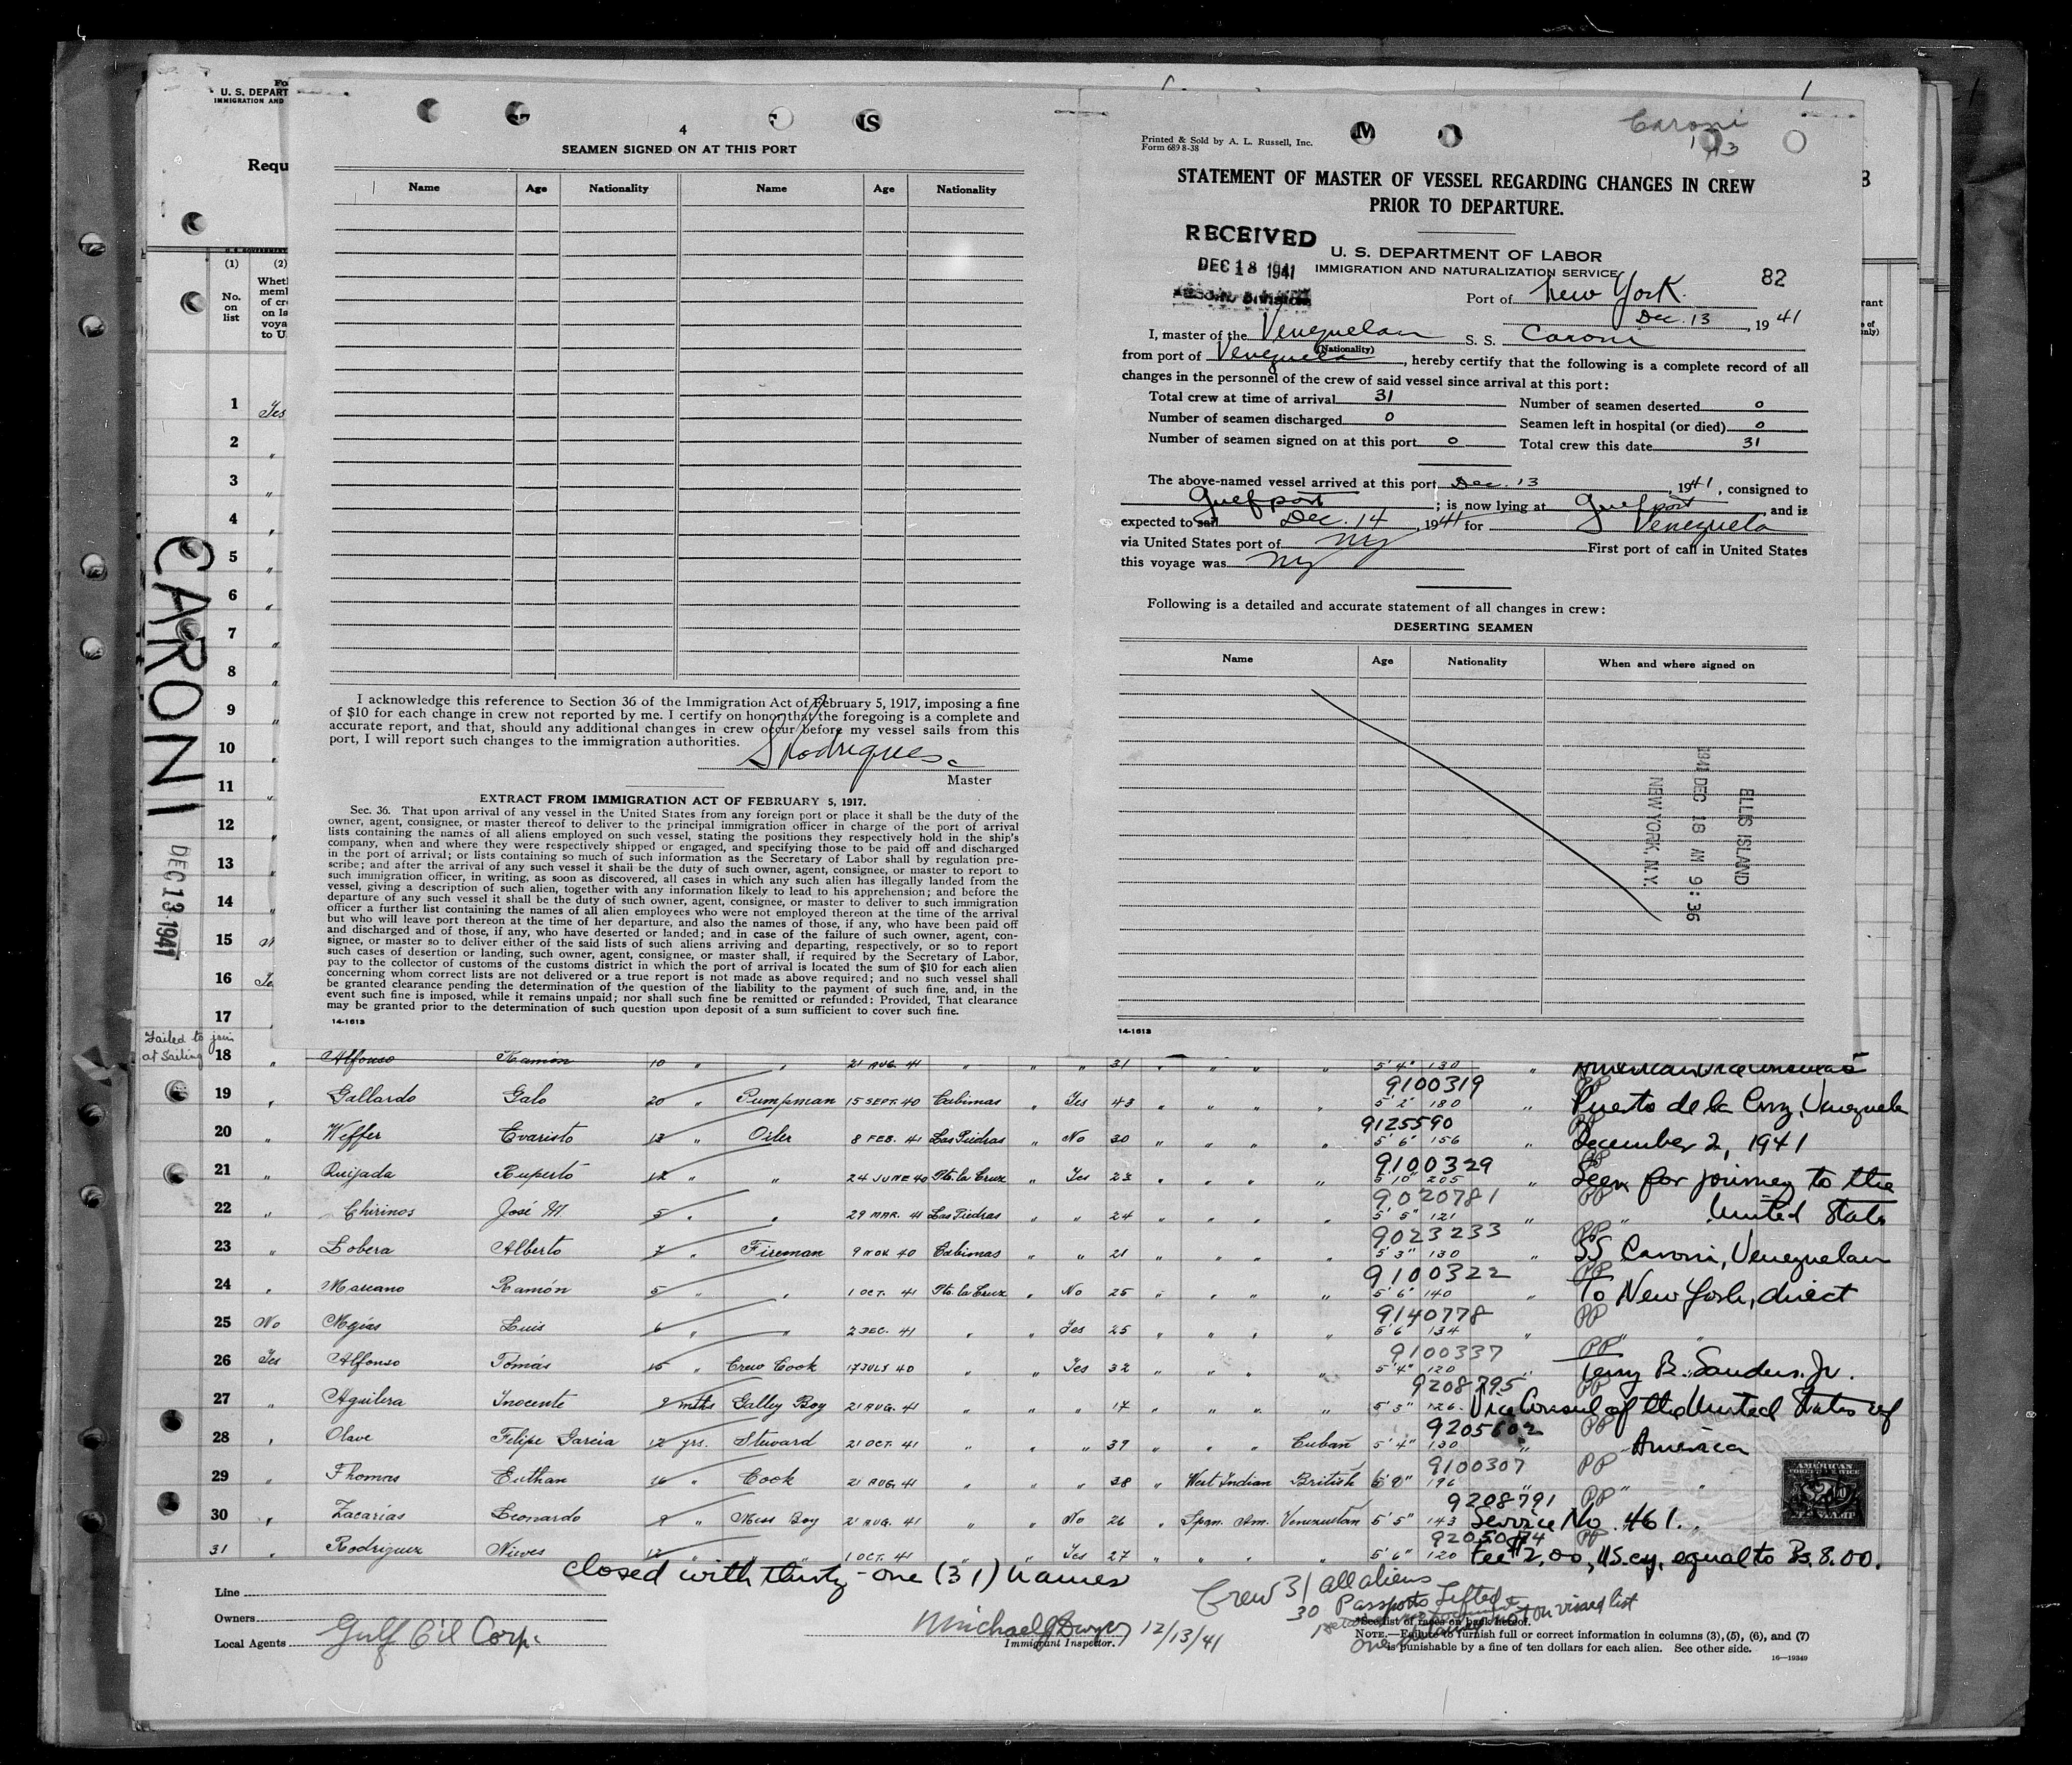 Fo
U. S. DEPART
IMMIGRATION AND
Requ
(1)
(2)
No.
on
list
Wheth
memb
of cre
on la
voya
to U.
1 Yes
2 "
3 "
4 "
5 "
6 "
7 "
8 "
9 "
10 "
11 "
12 "
13 "
14 "
15
16
17
CARONI
DEC 13 1941
4
SEAMEN SIGNED ON AT THIS PORT
Name Age Nationality Name Age Nationality
I acknowledge this reference to Section 36 of the Immigration Act of February 5, 1917, imposing a fine
of $10 for each change in crew not reported by me. I certify on honor that the foregoing is a complete and
accurate report, and that, should any additional changes in crew occur before my vessel sails from this
port, I will report such changes to the immigration authorities.
Master
EXTRACT FROM IMMIGRATION ACT OF FEBRUARY 5, 1917.
Sec. 36. That upon arrival of any vessel in the United States from any foreign port or place it shall be the duty of the
owner, agent, consignee, or master thereof to deliver to the principal immigration officer in charge of the port of arrival
lists containing the names of all aliens employed on such vessel, stating the positions they respectively hold in the ship's
company, when and where they were respectively shipped or engaged, and specifying those to be paid off and discharged
in the port of arrival; or lists containing so much of such information as the Secretary of Labor shall by regulation pre-
scribe; and after the arrival of any such vessel it shall be the duty of such owner, agent, consignee, or master to report to
such immigration officer, in writing, as soon as discovered, all cases in which any such alien has illegally landed from the
vessel, giving a description of such alien, together with any information likely to lead to his apprehension; and before the
departure of any such vessel it shall be the duty of such owner, agent, consignee, or master to deliver to such immigration
officer a further list containing the names of all alien employees who were not employed thereon at the time of the arrival
but who will leave port thereon at the time of her departure, and also the names of those, if any, who have been paid off
and discharged and of those, if any, who have deserted or landed; and in case of the failure of such owner, agent, con-
signee, or master so to deliver either of the said lists of such aliens arriving and departing, respectively, or so to report
such cases of desertion or landing, such owner, agent, consignee, or master shall, if required by the Secretary of Labor,
pay to the collector of customs of the customs district in which the port of arrival is located the sum of $10 for each alien
concerning whom correct lists are not delivered or a true report is not made as above required; and no such vessel shall
be granted clearance pending the determination of the question of the liability to the payment of such fine, and, in the
event such fine is imposed, while it remains unpaid; nor shall such fine be remitted or refunded: Provided, That clearance
may be granted prior to the determination of such question upon deposit of a sum sufficient to cover such fine.
14-1613
Printed & Sold by A. L. Russell, Inc.
Form 689 8-38
Caroni
STATEMENT OF MASTER OF VESSEL REGARDING CHANGES IN CREW
PRIOR TO DEPARTURE.
RECEIVED
DEC 18 1941
U. S. DEPARTMENT OF LABOR
IMMIGRATION AND NATURALIZATION SERVICE
82
Port of New York.
Dec. 13, 1941
I, master of the Venezuelan S. S. Caroni
(Nationality)
from port of Venezuela, hereby certify that the following is a complete record of all
changes in the personnel of the crew of said vessel since arrival at this port:
Total crew at time of arrival 31 Number of seamen deserted 0
Number of seamen discharged 0 Seamen left in hospital (or died) 0
Number of seamen signed on at this port 0 Total crew this date 31
The above-named vessel arrived at this port Dec. 13, 1941, consigned to
Gulfport; is now lying at Gulfport, and is
expected to sail Dec. 14, 1941 for Venezuela
via United States port of NY First port of call in United States
this voyage was NY
Following is a detailed and accurate statement of all changes in crew:
DESERTING SEAMEN
Name Age Nationality When and where signed on
ELLIS ISLAND
1941 DEC 18 AM 9:36
NEW YORK, N.Y.
14-1613
Failed to join
at Sailing
18 " Alfonso Ramon 10 " " 21 AUG. 41 " " " 31 " " " " 5'4" 130 "
9100319
19 " Gallardo Galo 20 " Pumpman 15 SEPT. 40 Cabimas " Yes 43 " " " " 5'2" 180 " PP Puerto de la Cruz, Venezuela
9125590
20 " Weffer Evaristo 13 " Oiler 8 FEB. 41 Las Piedras " No 30 " " " " 5'6" 156 " PP December 2, 1941
9100329
21 " Quijada Ruperto 12 " " 24 JUNE 40 Pto. la Cruz " Yes 23 " " " " 5'10" 205 " PP Seen for journey to the
9020781
22 " Chirinos José M. 5 " " 29 MAR. 41 Las Piedras " " 24 " " " " 5'5" 121 " PP United States
9023233
23 " Lobera Alberto 7 " Fireman 9 NOV. 40 Cabimas " " 21 " " " " 5'3" 130 " PP SS Caroni, Venezuelan
9100322
24 " Marcano Ramón 5 " " 1 OCT. 41 Pto. la Cruz " No 25 " " " " 5'6" 140 " PP To New York, direct
9140778
25 No Mejías Luis 6 " " 2 DEC. 41 " " Yes 25 " " " " 5'6" 134 " PP
9100337
26 Yes Alfonso Tomás 15 " Crew Cook 17 JULY 40 " Yes 32 " " " " 5'4" 120 " PP Terry B. Sanders, Jr.
9208795
27 " Aguilera Inocente 2 mths Galley Boy 21 AUG. 41 " " " 17 " " " " 5'3" 126 PP Vice Consul of the United States of
28 " Olave Felipe Garcia 12 yrs. Steward 21 OCT. 41 " " " 39 " " " Cuban 5'4" 130 " PP America
9100307
29 " Thomas Euthan 16 " Cook 21 AUG. 41 " " " 38 " West Indian British 196 " PP
9208791
30 " Zacarías Leonardo 9 " Mess Boy 21 AUG. 41 " " No 26 " Span. Am. Venezuelan 5'5" 143 PP Service No. 461.
31 " Rodriguez Nieves 12 " " 1 OCT. 41 " " Yes 27 " " " " 5'6" 120 PP Fee $2.00, US cy, equal to Bs. 8.00.
AMERICAN
closed with thirty-one (31) names
Crew 31 all aliens
30 Passports lifted
Line
Owners
Local Agents Gulf Oil Corp.
Michael J Dwyer 12/13/41
Immigrant Inspector.
*See list of races on back hereof.
NOTE.—Failure to furnish full or correct information in columns (3), (5), (6), and (7)
is punishable by a fine of ten dollars for each alien. See other side.
16—19349